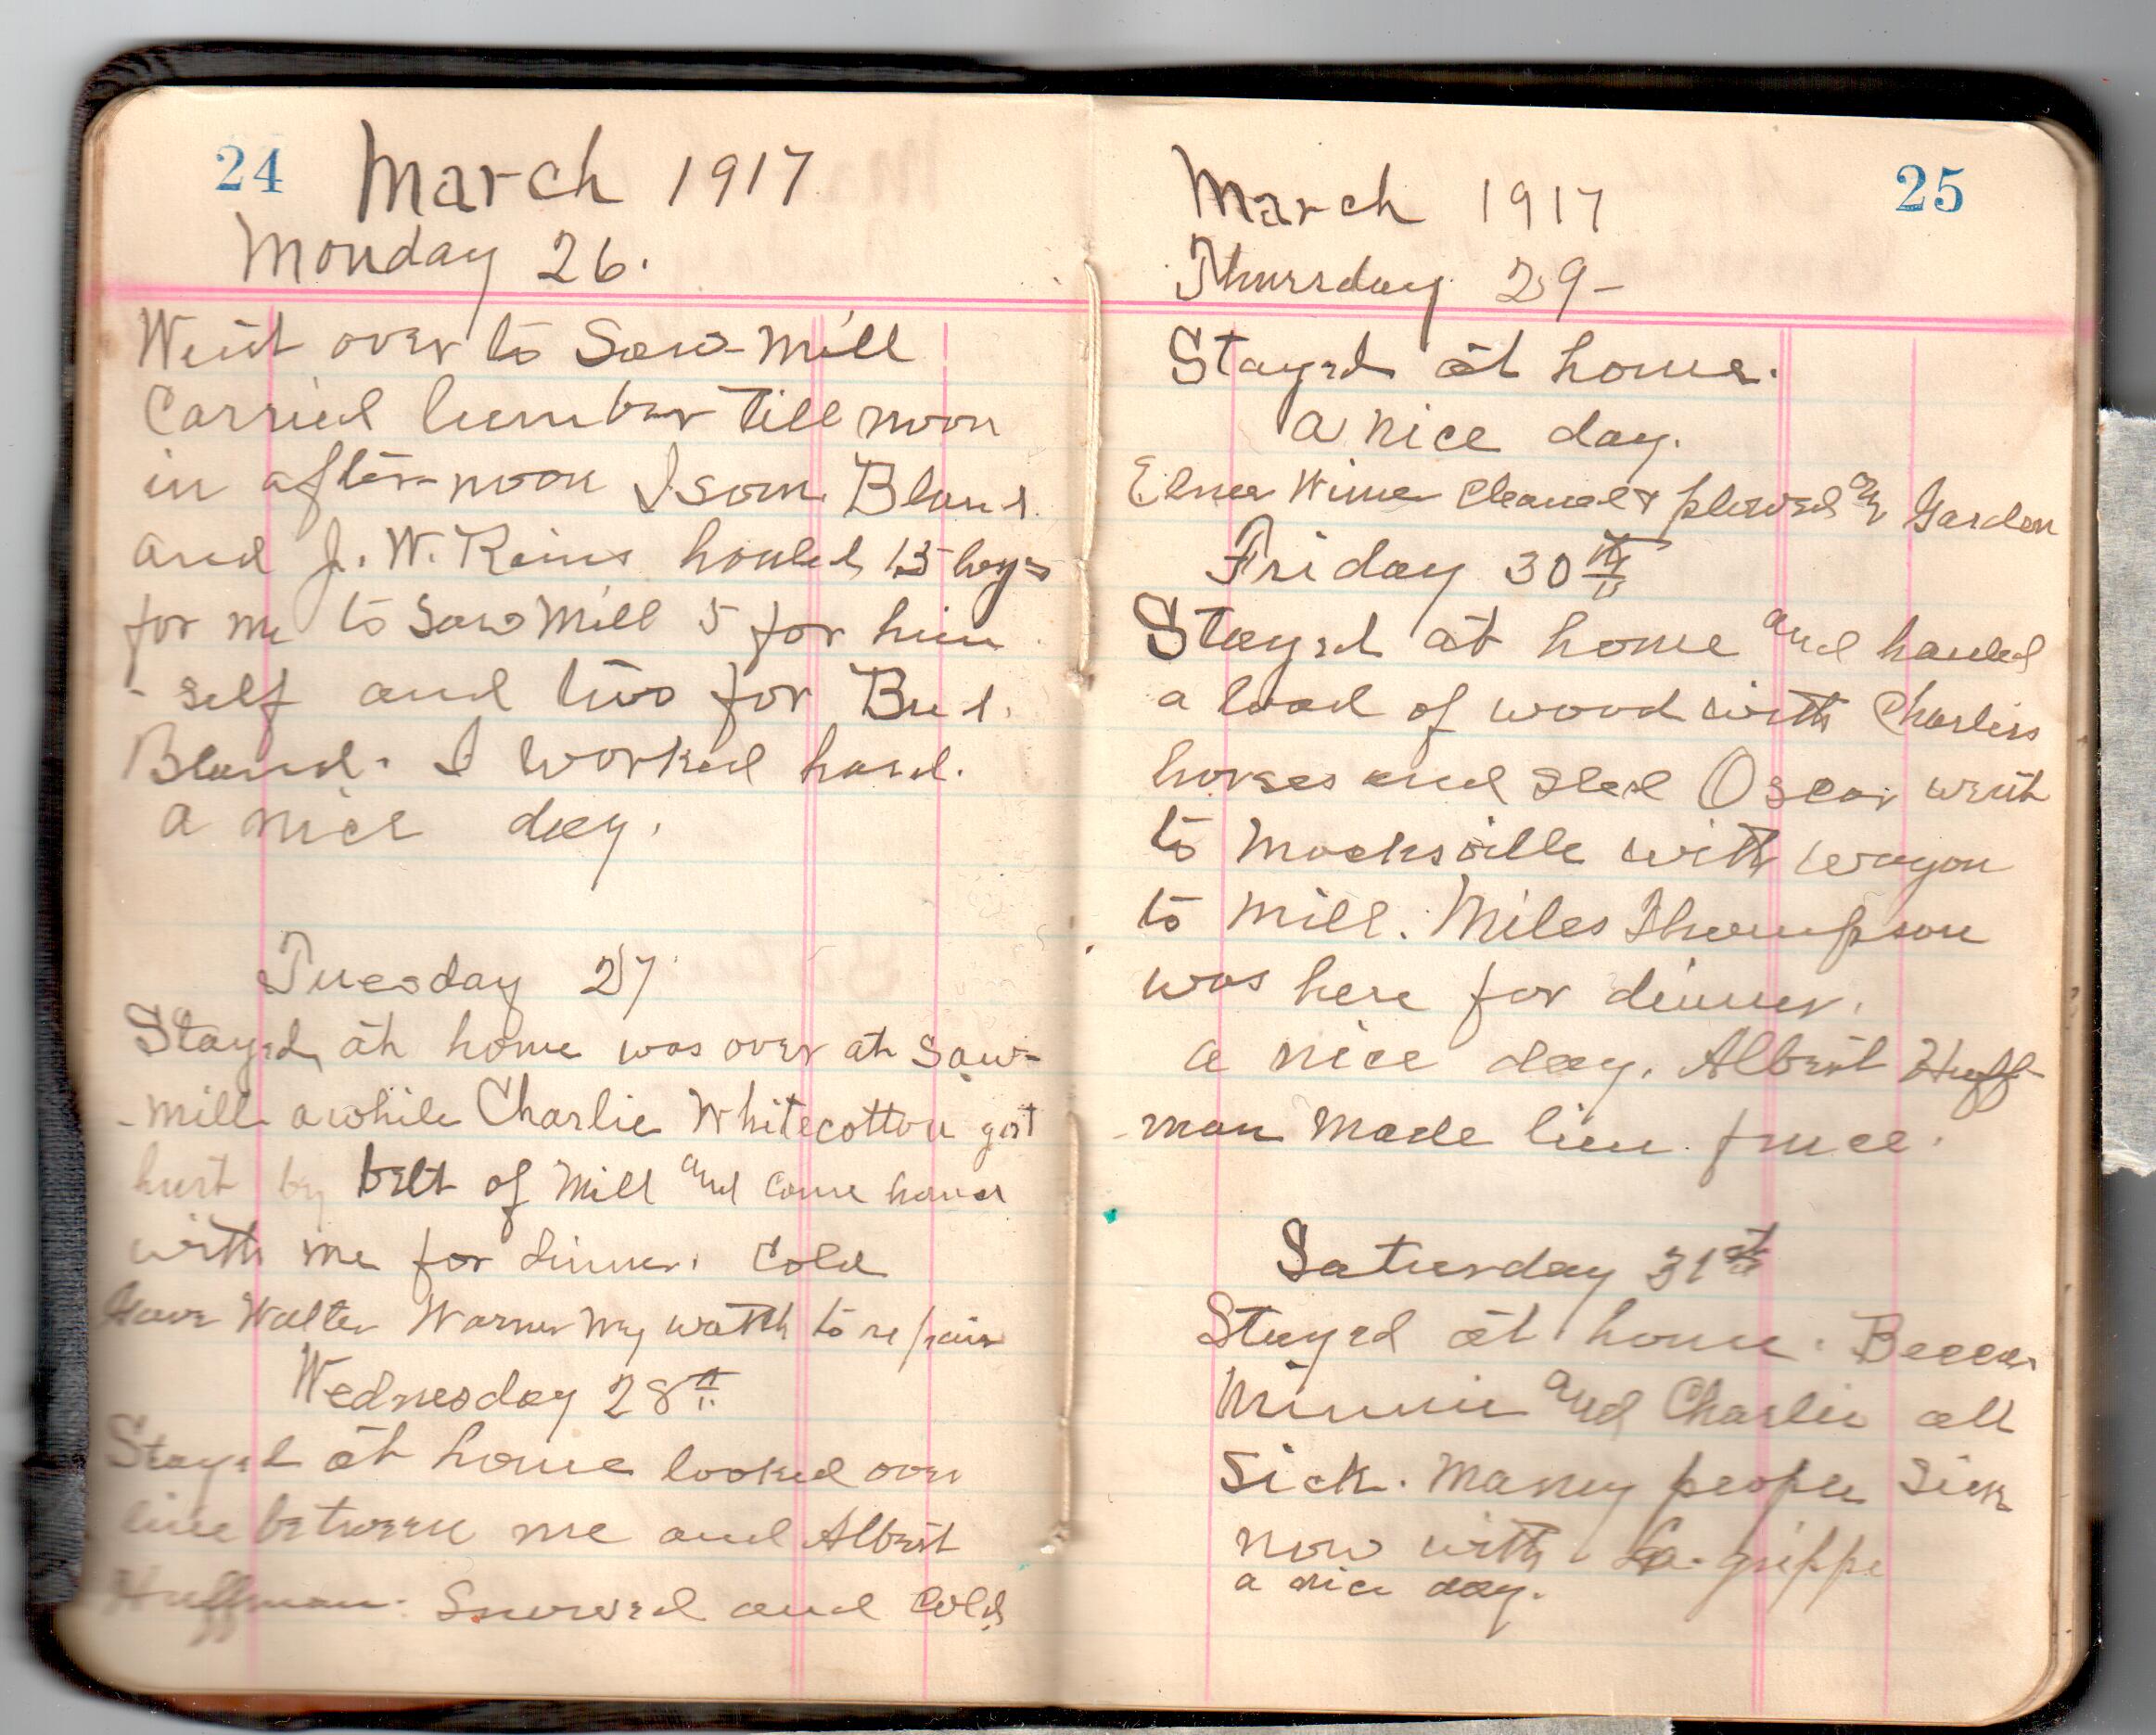 24 March 1917
Monday 26.
Went over to Saw-Mill
Carried lumber till noon
in after-noon Isom Bland
and J. W. Rains hauled 13 logs
for me to Saw Mill 5 for him
-self and two for Bud
Bland. I worked hard.
a nice day.
Tuesday 27
Stayed at home was over at Saw-
-mill awhile Charlie Whitecotton got
hurt by belt of Mill and come home
with me for dinner. Cold
Gave Walter Warner my watch to repair
Wednesday 28th
Stayed at home looked over
line between me and Albert
Huffman. Snowed and Cold
March 1917 25
Thursday 29-
Stayed at home.
a nice day.
Elmer Wimer cleaned & plowed our Garden
Friday 30th
Stayed at home and hauled
a load of wood with Charlies
horses and sled Oscar went
to Macksville with wagon
to Mill. Miles Thompson
was here for dinner.
a nice day. Albert Huff-
-man made line fence.
Saturday 31st
Stayed at home. Becca
Minnie and Charlie all
Sick. Many people Sick
now with La-grippe
a nice day.